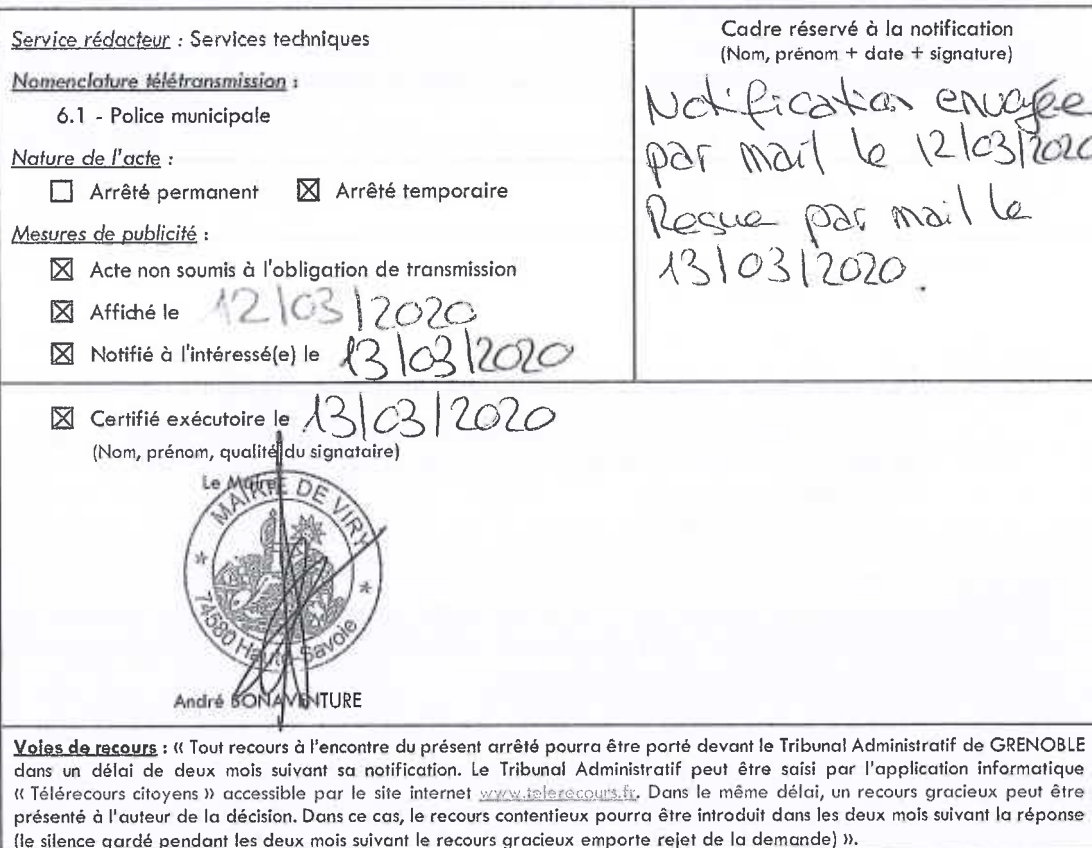 Service rédacteur : Services techniques
Nomenclature télétransmission :
6.1 - Police municipale
Nature de l'acte :
☐ Arrêté permanent ☒ Arrêté temporaire
Mesures de publicité :
☒ Acte non soumis à l'obligation de transmission
☒ Affiché le 12/03/2020
☒ Notifié à l'intéressé(e) le 13/03/2020
Cadre réservé à la notification
(Nom, prénom + date + signature)
Notification envoyée
par mail le 12/03/2020
Reçue par mail le
13/03/2020.
☒ Certifié exécutoire le 13/03/2020
(Nom, prénom, qualité du signataire)
Le Maire
MAIRIE DE VIRY
74580 Haute-Savoie
André BONAVENTURE
Voies de recours : « Tout recours à l'encontre du présent arrêté pourra être porté devant le Tribunal Administratif de GRENOBLE
dans un délai de deux mois suivant sa notification. Le Tribunal Administratif peut être saisi par l'application informatique
« Télérecours citoyens » accessible par le site internet www.telerecours.fr. Dans le même délai, un recours gracieux peut être
présenté à l'auteur de la décision. Dans ce cas, le recours contentieux pourra être introduit dans les deux mois suivant la réponse
(le silence gardé pendant les deux mois suivant le recours gracieux emporte rejet de la demande) ».